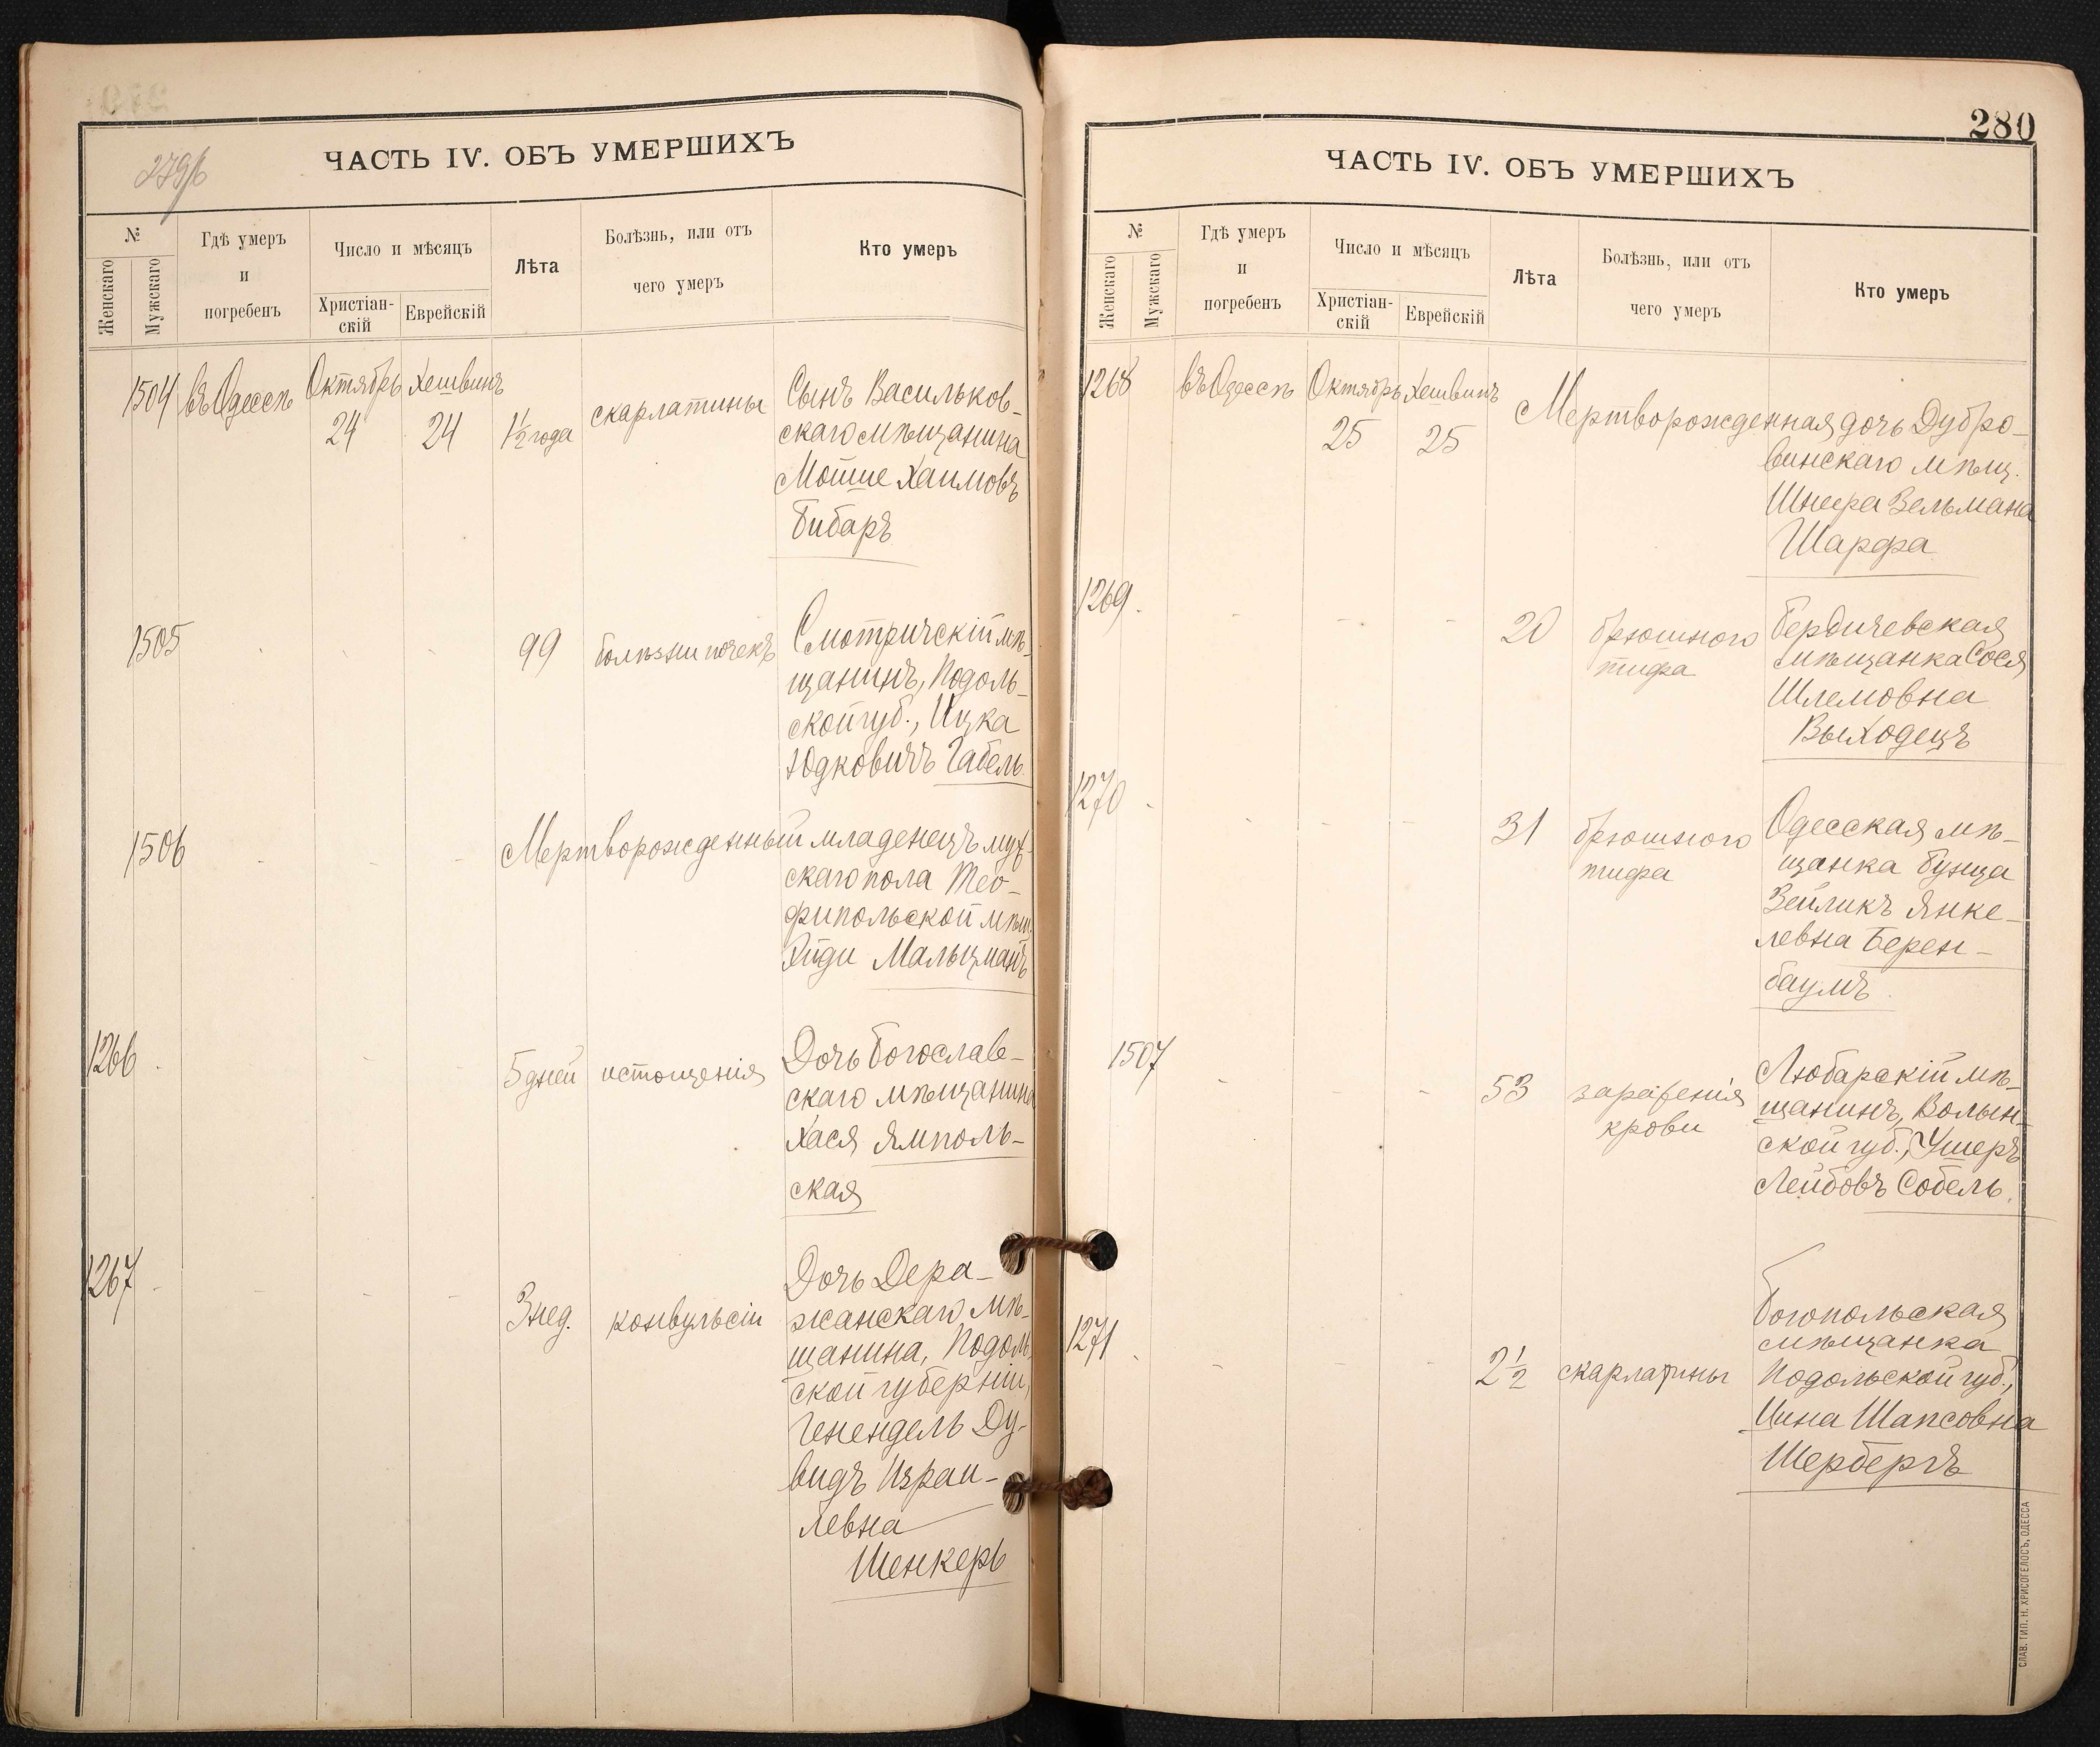 279/б
ЧАСТЬ IV. ОБЪ УМЕРШИХЪ
№
Женскаго
Мужскаго
Гдѣ умеръ
и
погребенъ
Число и мѣсяцъ
Христіан-
скій
Еврейскій
Лѣта
Болѣзнь, или отъ
чего умеръ
Кто умеръ
1504 въ Одессѣ Октябрь Хешвинъ
24 24 1½ года скарлатины
Сынъ Васильков-
скаго мѣщанина
Мойше Хаимовъ
Бибаръ
1505 99 болѣзни почекъ
Смотричскій мѣ-
щанинъ, Подоль-
ской губ., Ицка
Юдковичъ Габель
1506 Мертворожденный младенецъ муж-
скаго пола Тео-
фипольской мѣщ.
Эйди Мальцманъ
1266 5 дней истощенія
Дочь Богослав-
скаго мѣщанина
Хася Ямполь-
ская
1267 3 нед. конвульсіи
Дочь Дера-
жанскаго мѣ-
щанина, Подоль-
ской губерніи,
Генендель Ду-
видъ Израи-
левна
Шенкеръ
280
ЧАСТЬ IV. ОБЪ УМЕРШИХЪ
№
Женскаго
Мужскаго
Гдѣ умеръ
и
погребенъ
Число и мѣсяцъ
Христіан-
скій
Еврейскій
Лѣта
Болѣзнь, или отъ
чего умеръ
Кто умеръ
1268 въ Одессѣ Октябрь Хешвинъ
25 25
Мертворожденная дочь Дубро-
винскаго мѣщ.
Шнеера Зельмана
Шарфа
1269. 20 брюшного
тифа
Бердичевская
мѣщанка Сося
Шлемовна
Выходецъ
1270 31 брюшного
тифа
Одесская мѣ-
щанка Бунца
Зейликъ Янке-
левна Берен-
баумъ
1507 53 зараженія
крови
Любарскій мѣ-
щанинъ, Волын-
ской губ., Ушеръ
Лейбовъ Собель.
1271 2½ скарлатины
Богопольская
мѣщанка
Подольской губ.,
Шапсовна
Шербергъ
СЛАВ. ТИП. Н. ХРИСОГЕЛОСЪ, ОДЕССА